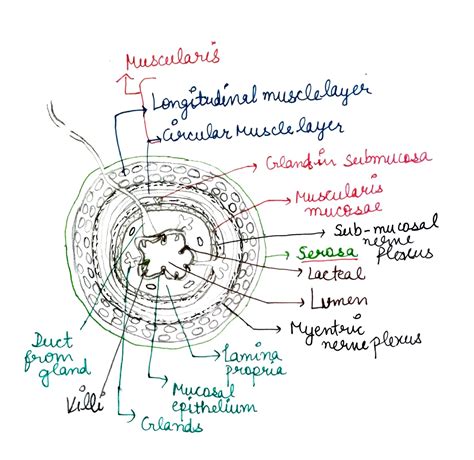 Muscularis
Longitudinal muscle layer
Circular Muscle layer
Gland in submucosa
Muscularis
mucosae
Sub-mucosal
nerve
plexus
Serosa
Lacteal
Lumen
Myentric
nerve plexus
Lamina
propria
Mucosal
epithelium
Glands
Villi
Duct
from
gland